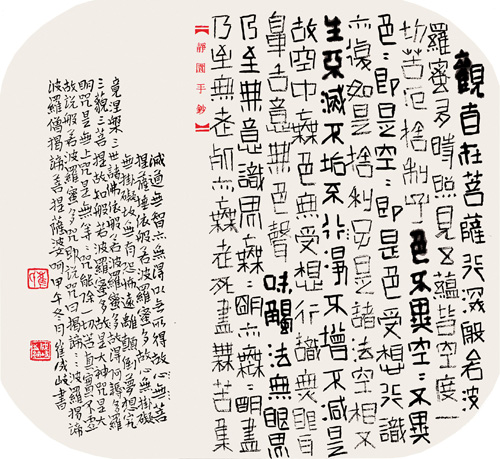 觀自在菩薩行深般若波
羅蜜多時照見五蘊皆空度一
切苦厄捨利子色不異空=不異
色=即是空=即是色受想行識
亦復如是捨利子是諸法空相不
生不滅不垢不淨不增不減是
故空中無色無受想行識無眼耳
鼻舌意無色聲味觸法無眼界
乃至無意識界無=明亦無=明盡
乃至無老死亦無老死盡無苦集
【靜園手鈔】
滅道無智亦無得以無所得故心無菩
提薩埵依般若波羅蜜多故心無掛礙
無掛礙故無有恐怖遠離顛倒夢想究
竟涅槃三世諸佛依般若波羅蜜多故得阿耨多羅
三藐三菩提故知般若波羅蜜多是大神咒是大
明咒是無上咒是無等=咒能除一切苦真實不虛
故說般若波羅蜜多咒即說咒曰揭諦=波羅揭諦
波羅僧揭諦菩提薩婆訶甲午冬月崔成岐書